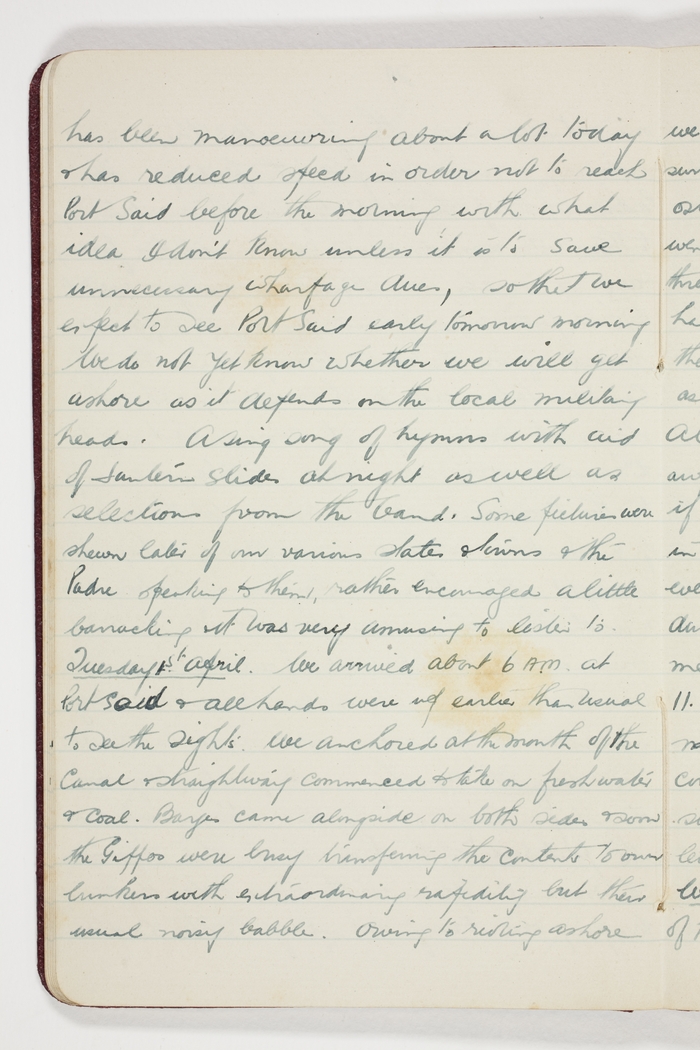 has been manoeuvring about a lot today
& has reduced speed in order not to reach
Port Said before the morning with what
idea I don't know unless it is to save
unnecessary wharfage dues, so that we
expect to see Port Said early tomorrow morning
We do not yet know whether we will get
ashore as it depends on the local military
heads. A sing song of hymns with aid
of lantern slides at night as well as
selections from the band. Some pictures were
shewn later of our various states & towns & the
Padre speaking to them, rather encouraged a little
barracking & it was very amusing to listen to.
Tuesday 1st April. We arrived about 6 A.M. at
Port Said & all hands were up earlier than usual
to see the sights. We anchored at the mouth of the
Canal & straightway commenced to take on fresh water
& coal. Barges came alongside on both sides & soon
the Gippos were busy transferring the contents to our
bunkers with extraordinary rapidity but their
usual noisy babble. Owing to rioting ashore
we
11.
if
in
the
as
of